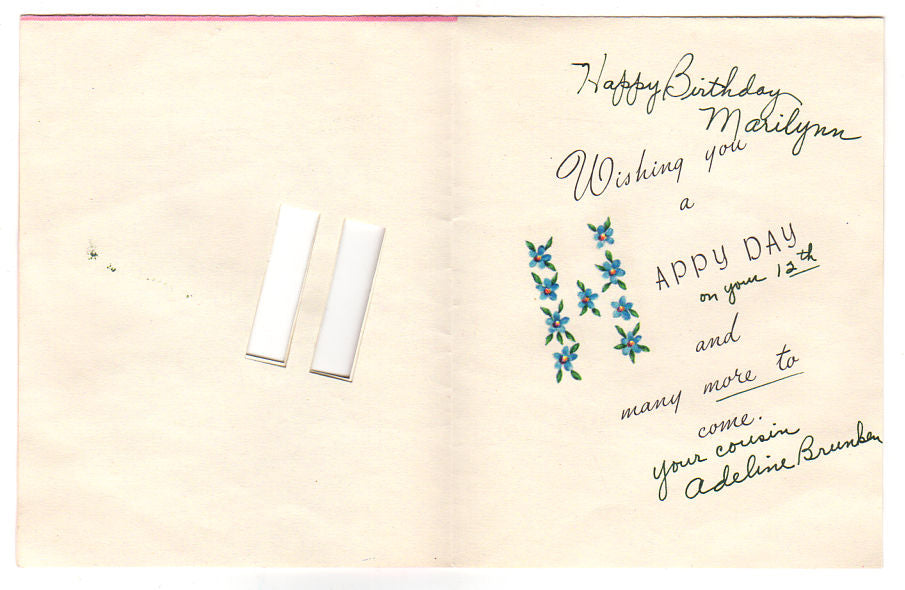 Happy Birthday
Marilynn
Wishing you
a
HAPPY DAY
on your 12th
and
many more to
come.
your cousin
Adeline Brunken